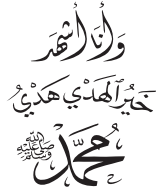 وَأَنَا أَشْهَد
خَيْرُ الهَدْيِ هَدْيُ
مُحَمَّد ﷺ